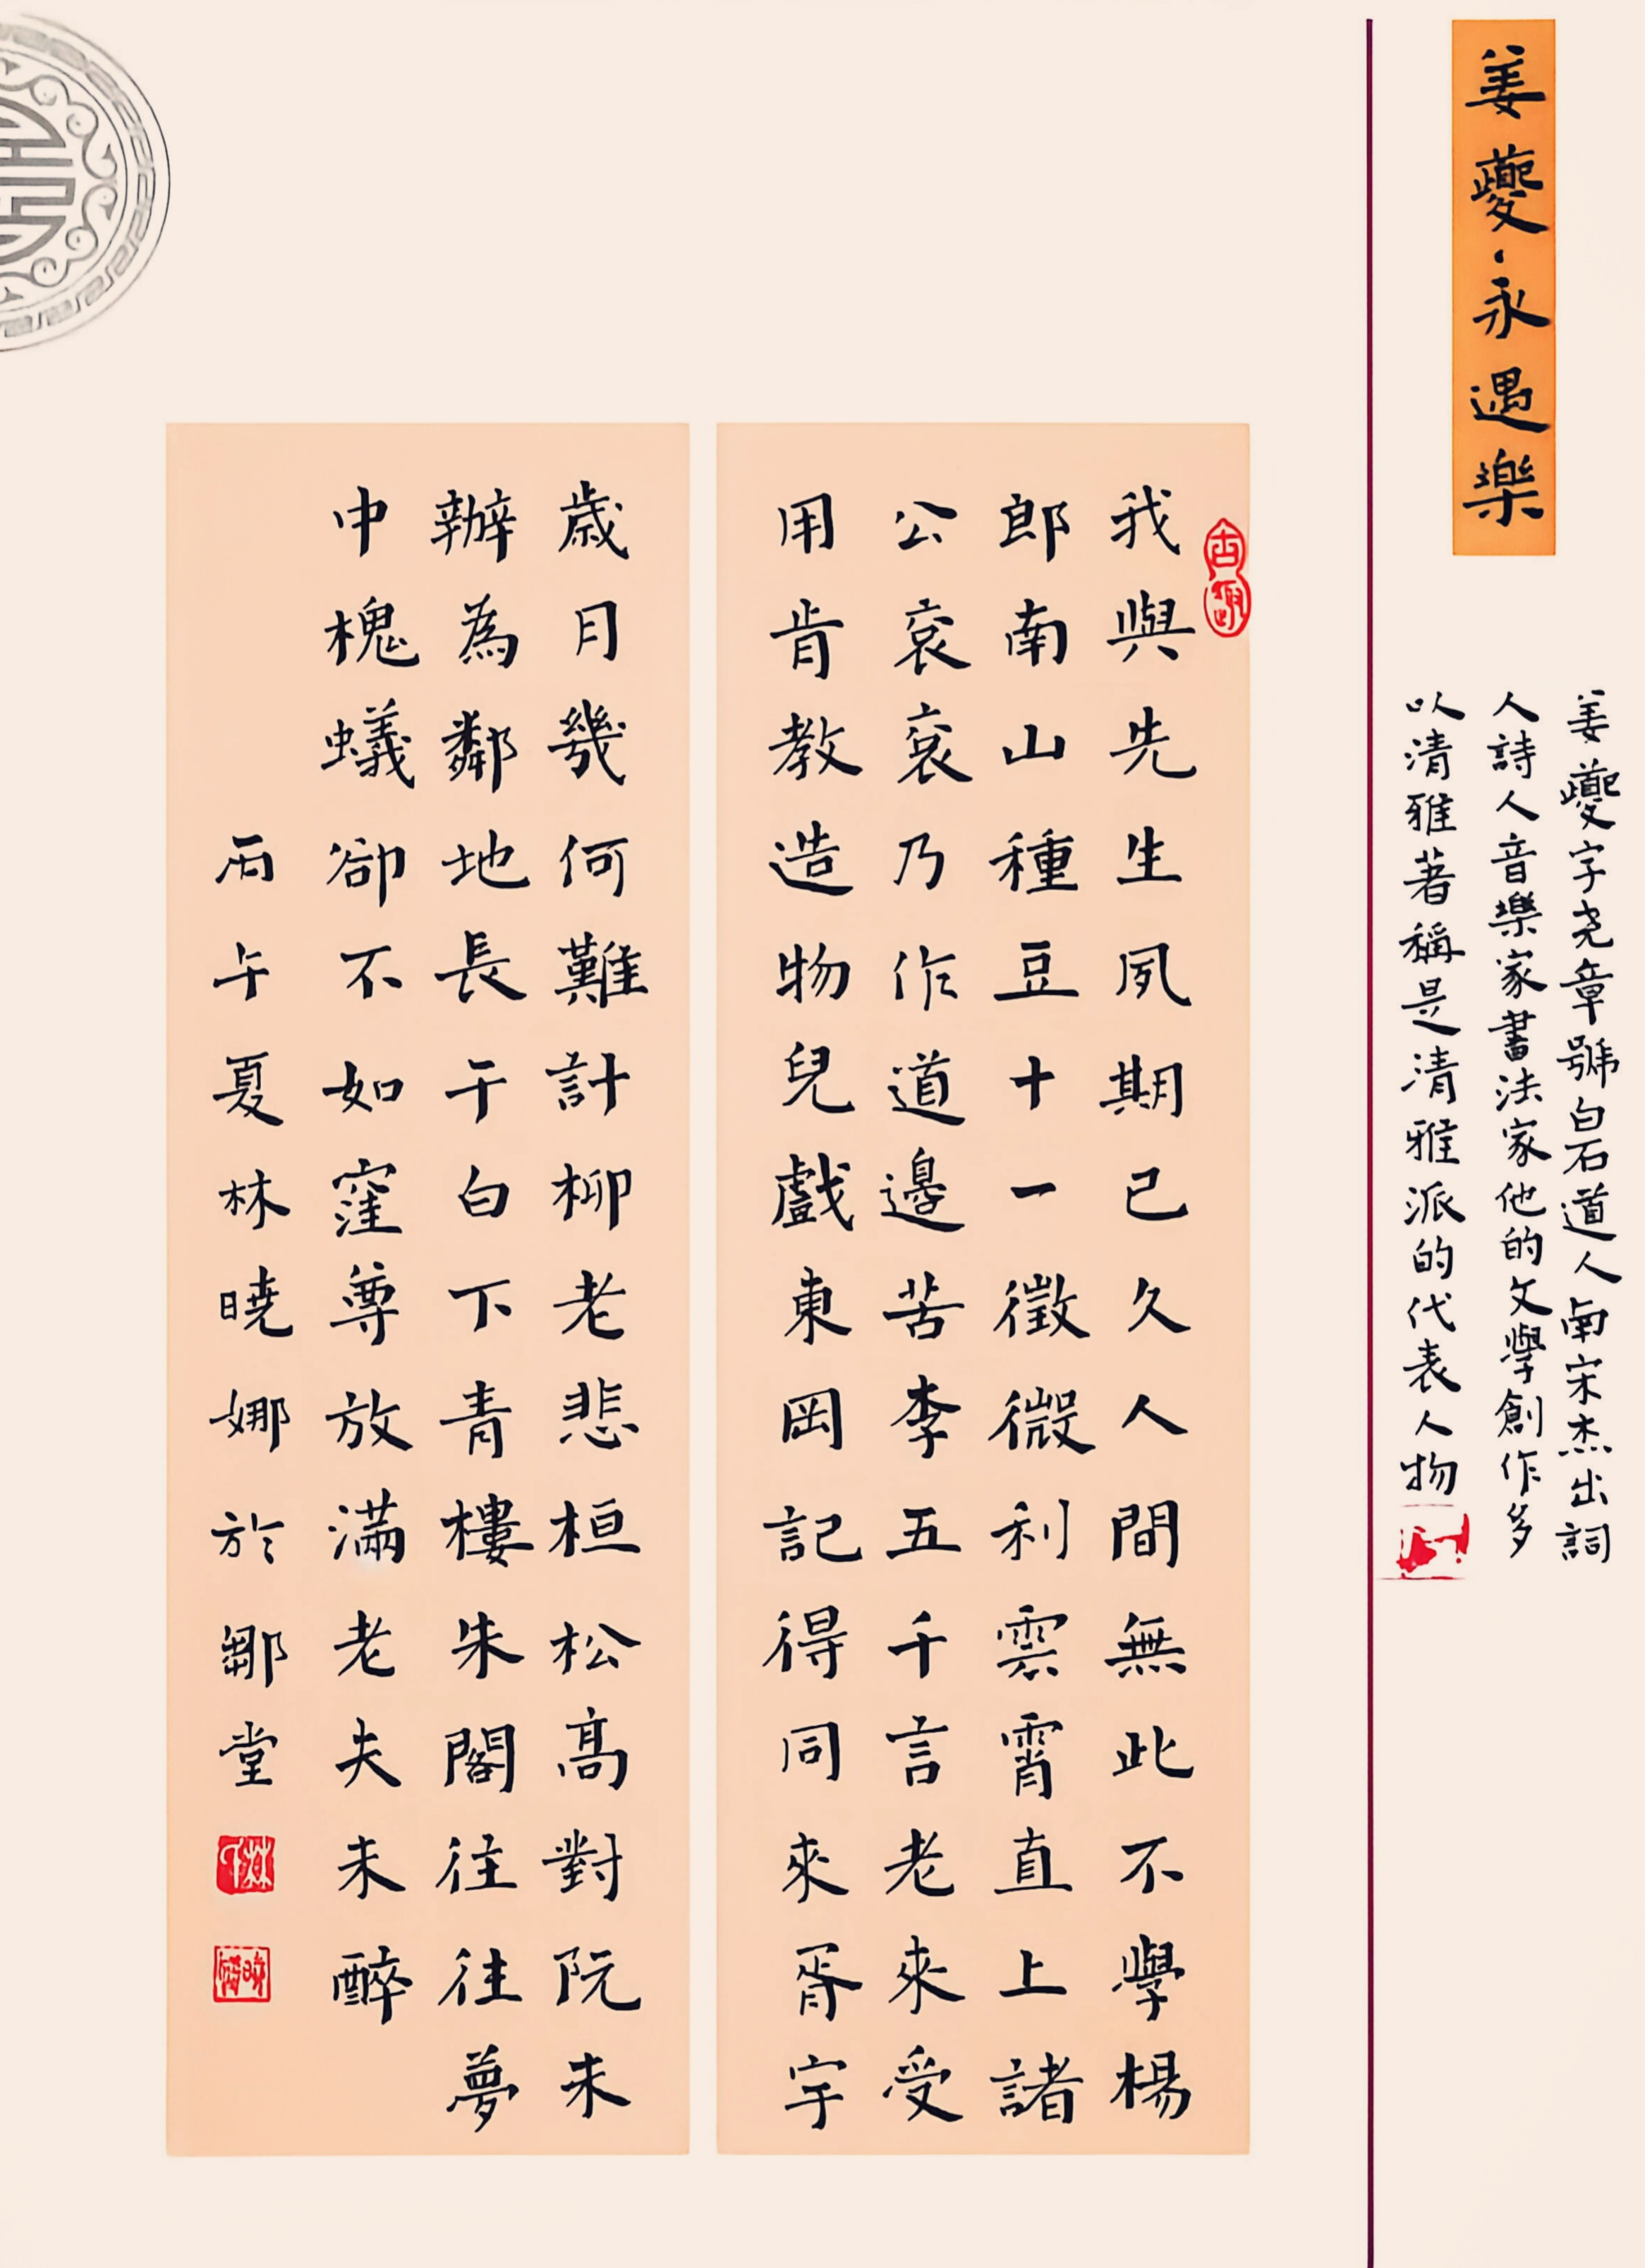 姜夔·永遇樂
姜夔字尧章號白石道人南宋杰出詞
人詩人音樂家書法家他的文學創作多
以清雅著稱是清雅派的代表人物
我與先生夙期已久人間無此不學楊
郎南山種豆十一徵微利雲霄直上諸
公衮衮乃作道邊苦李五千言老來受
用肯教造物兒戲東岡記得同來胥宇
歲月幾何難計柳老悲桓松高對阮未
辦為鄰地長干白下青樓朱閣往往夢
中槐蟻卻不如窪尊放滿老夫未醉
丙午夏林曉娜於鄒堂